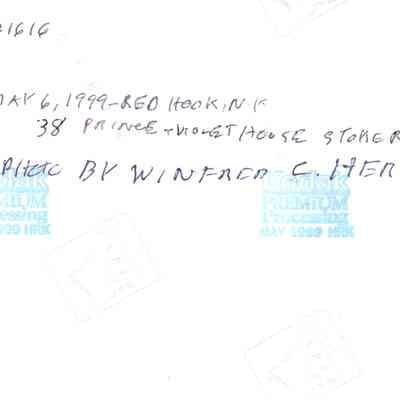 1616
MAY 6, 1999-RED HOOK, N.Y.
38 PRINCE + VIOLET HOUSE STORER
PHOTO BY WINFRED C. HER
PREMIUM
essing
HRK
PREMIUM
Processing
MAY 1999 HRK